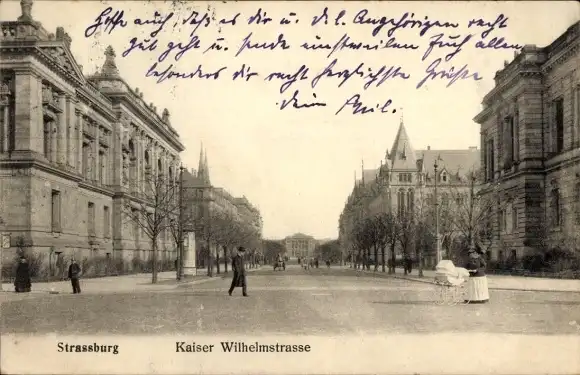 Hoffe auch daß es dir u. d. l. Angehörigen recht
gut geht u. sende einstweilen Euch allen
besonders dir recht herzlichste Grüße
dein
Strassburg Kaiser Wilhelmstrasse